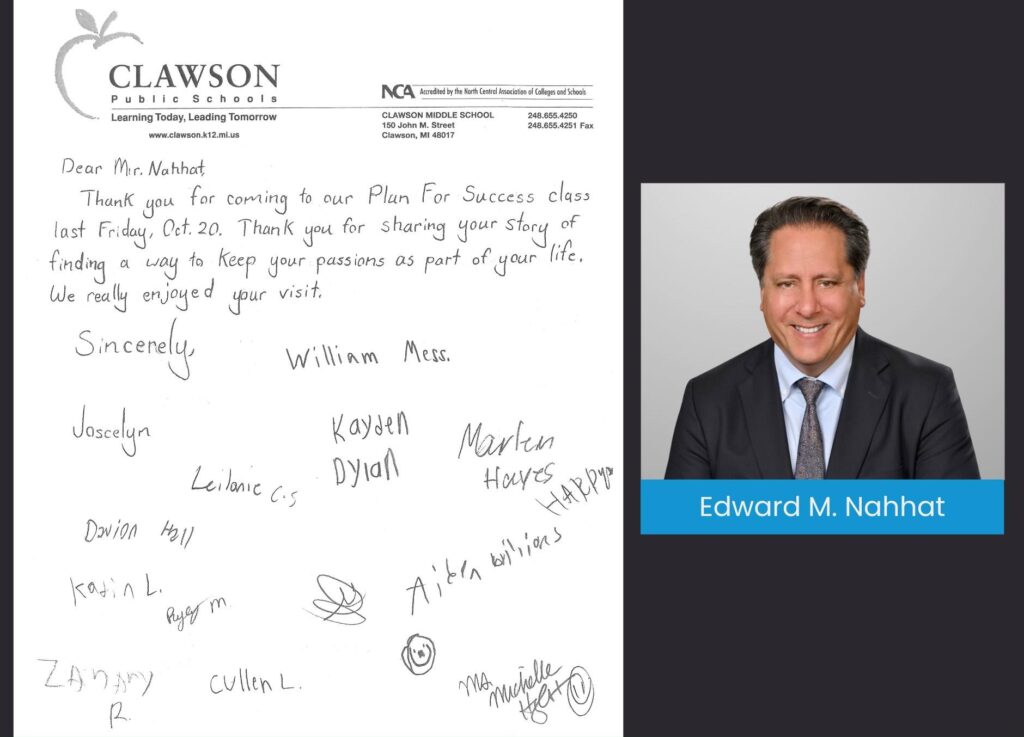 CLAWSON
Public Schools
Learning Today, Leading Tomorrow
www.clawson.k12.mi.us
NCA Accredited by the North Central Association of Colleges and Schools
CLAWSON MIDDLE SCHOOL 248.655.4250
150 John M. Street 248.655.4251 Fax
Clawson, MI 48017
Dear Mr. Nahhat,
Thank you for coming to our Plan For Success class
last Friday, Oct. 20. Thank you for sharing your story of
finding a way to keep your passions as part of your life.
We really enjoyed your visit.
Sincerely,
William Mess.
Joscelyn
Kayden
Dylan
Hayes
Leilanie C.S
Davion Hall
Aiden Williams
L.
m
Cullen L.
R.
Ms. Michelle
Edward M. Nahhat